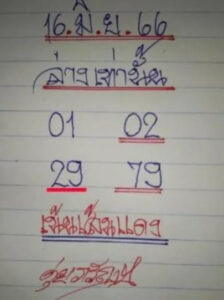 16.มิ.ย.66
ล่างเท่านั้น
01 02
29 79
เน้นเส้นแดง